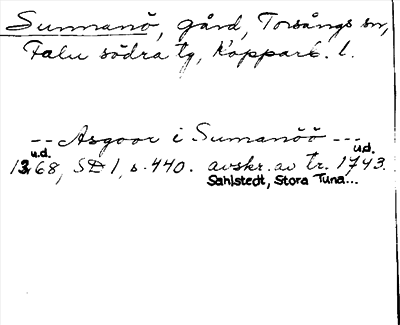 Sunnanö, gård, Torsångs sn,
Falu södra tg, Kopparb. l.
-- Asgoor i Sumanöö ---
u.d. u.d.
1368, SD 1, s. 440. avskr. av tr. 1743.
Sahlstedt, Stora Tuna...